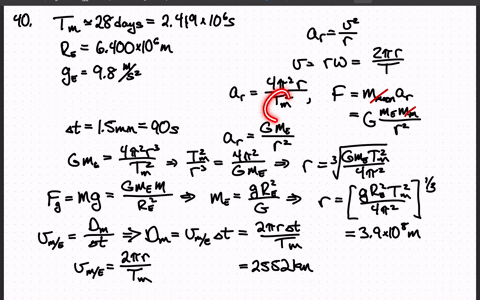 40. Tₘ ≈ 28 days = 2.419×10⁶ s
R_E = 6.400×10⁶ m
g_E = 9.8 m/s²
a_r = v²/r
v = rω = 2πr/T
a_r = 4π²r/Tₘ², F = m_moon a_r
= G m_E m_m/r²
Δt = 1.5min = 90s
a_r = Gm_E/r²
Gm_E = 4π²r³/Tₘ² ⇒ Tₘ²/r³ = 4π²/Gm_E ⇒ r = ∛(Gm_E Tₘ²/4π²)
F_g = mg = Gm_E m/R_E² ⇒ m_E = gR_E²/G ⇒ r = [gR_E²Tₘ²/4π²]^(1/3)
= 3.9×10⁸ m
v_m/E = Dₘ/Δt ⇒ Dₘ = v_m/E Δt = 2πrΔt/Tₘ
v_m/E = 2πr/Tₘ
= 2552km